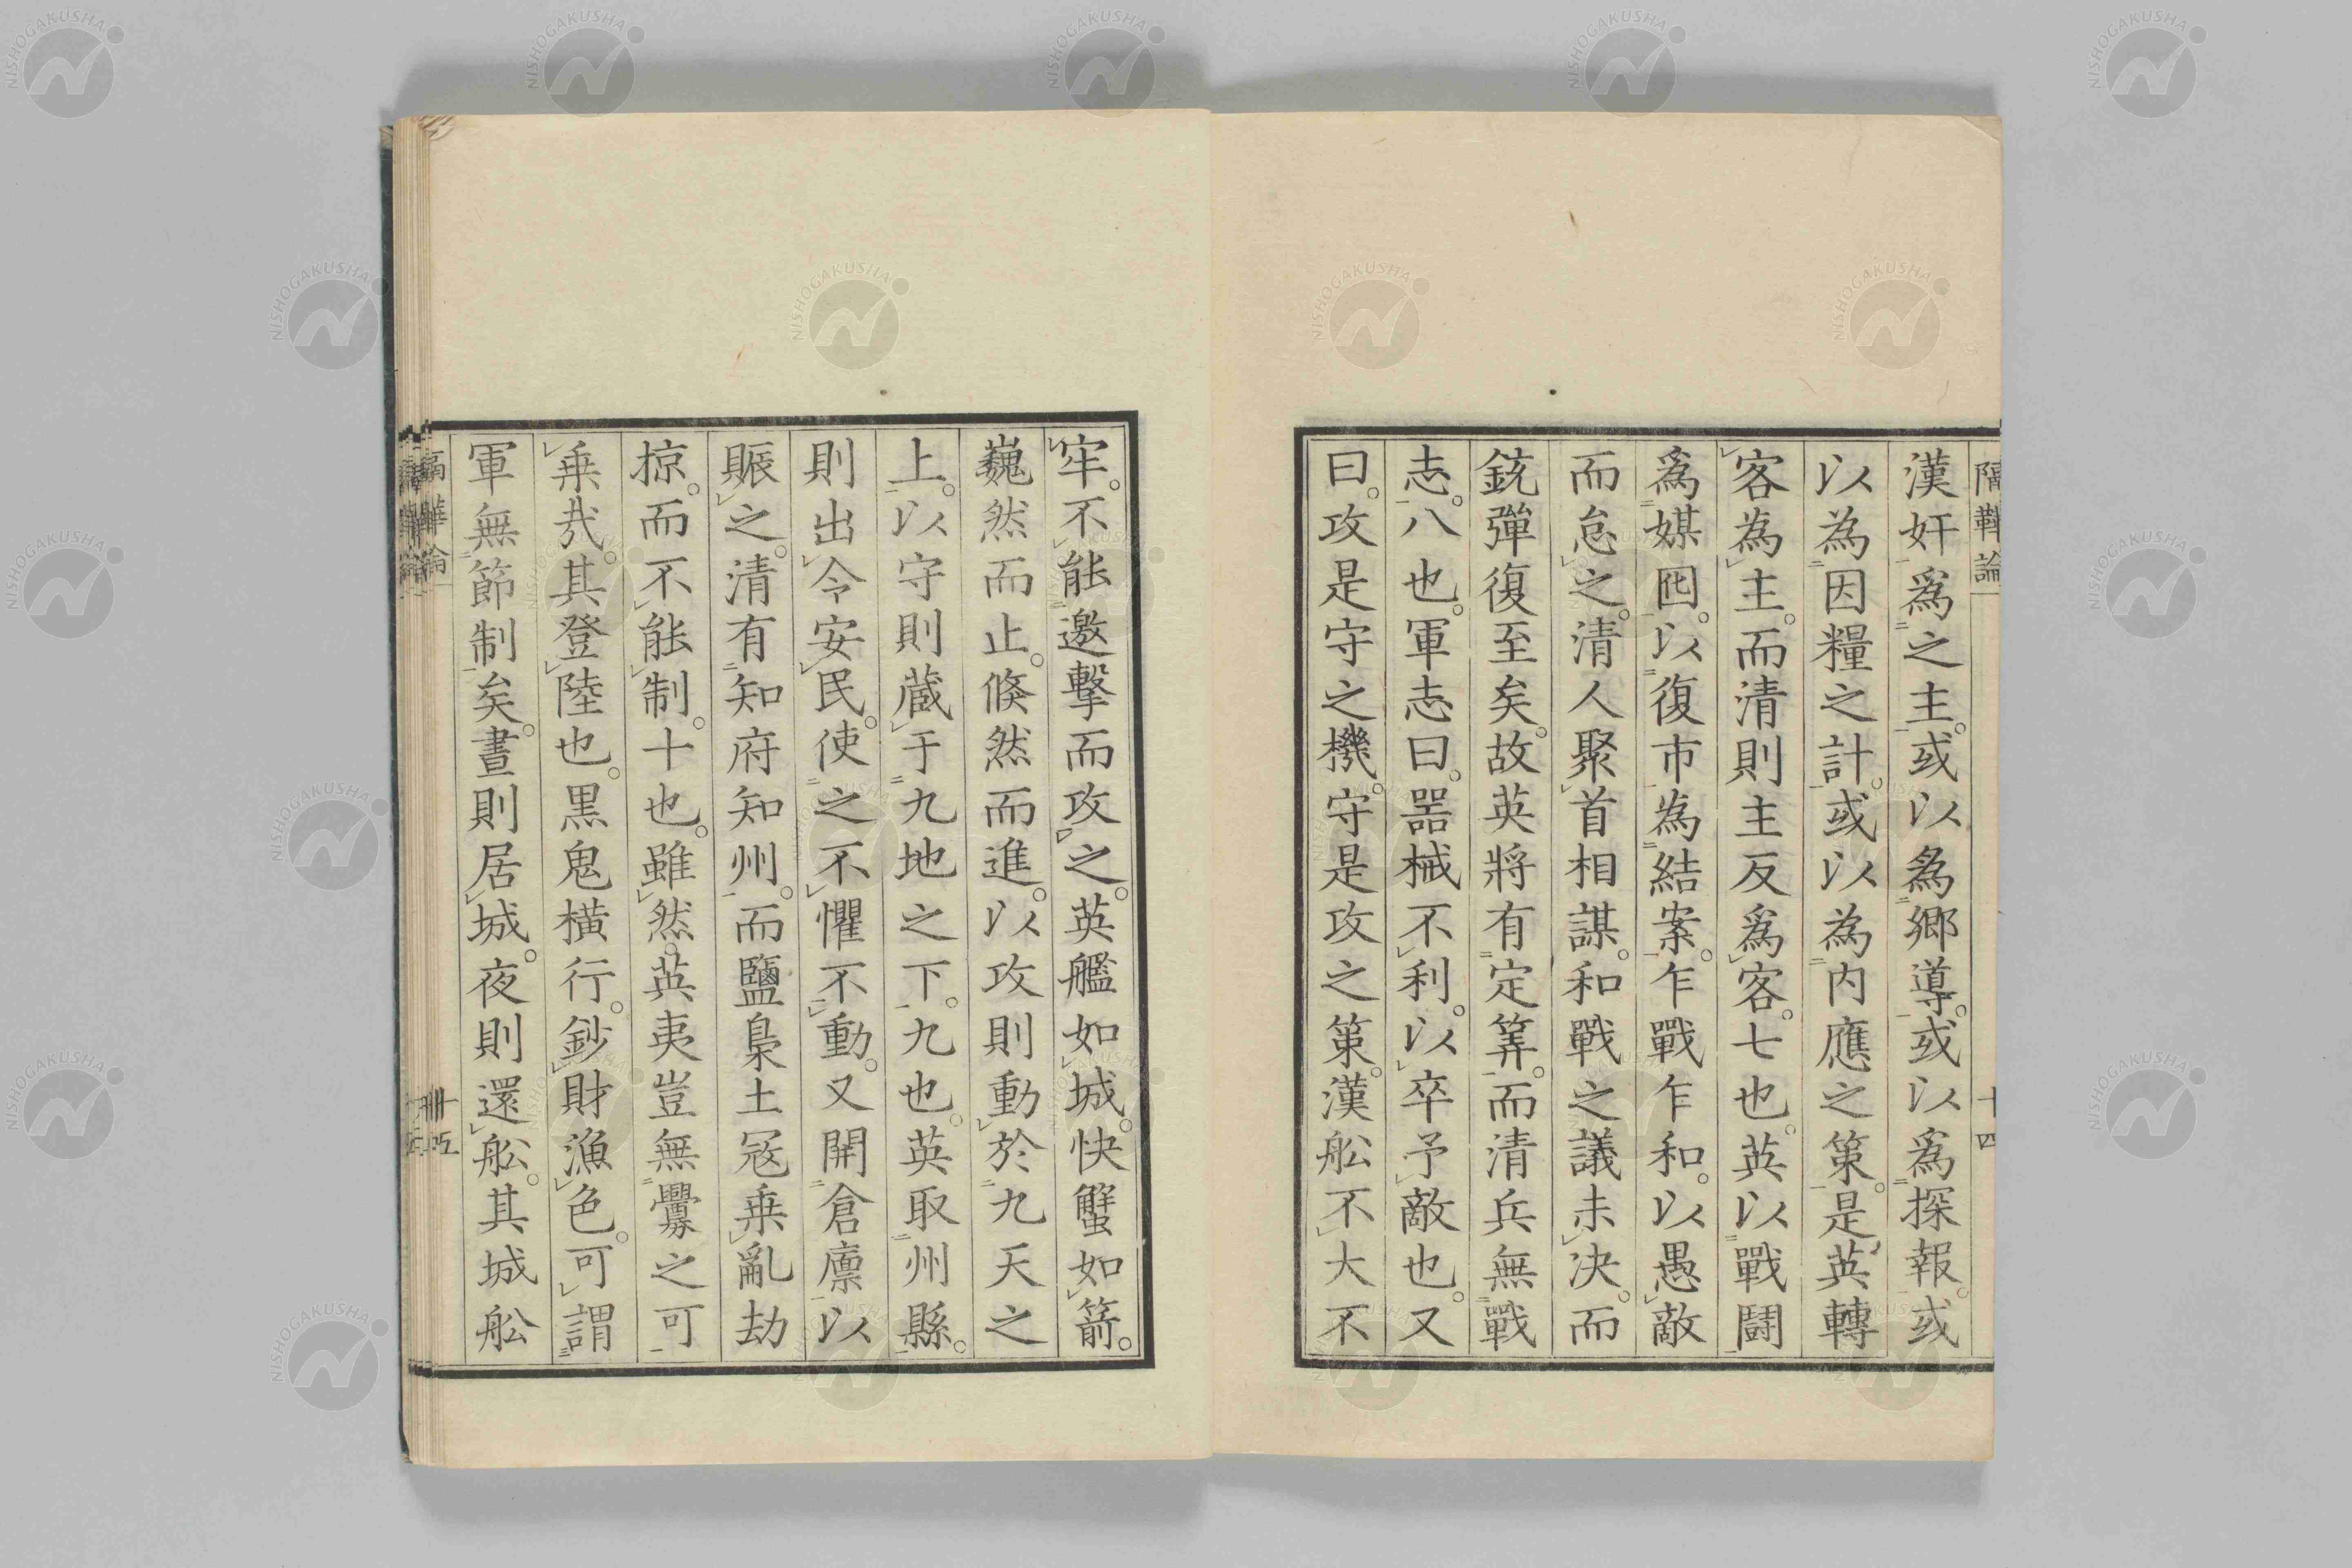 隔鞾論 十四
漢奸爲之主。或以爲郷導。或以爲探報。或
以為因糧之計。或以為内應之策。是英轉
客為主。而清則主反爲客。七也。英以戰鬪
爲媒囮。以復市為結案。乍戰乍和。以愚敵
而怠之。清人聚首相謀。和戰之議未決。而
銃彈復至矣。故英將有定筭。而清兵無戰
志。八也。軍志曰。器械不利。以卒予敵也。又
曰。攻是守之機。守是攻之策。漢舩不大不
牢。不能邀擊而攻之。英艦如城。快蟹如箭。
巍然而止。倐然而進。以攻則動於九天之
上。以守則蔵于九地之下。九也。英取州縣。
則出令安民。使之不懼不動。又開倉廪以
賑之。清有知府知州。而鹽梟土冦乗亂劫
掠。而不能制。十也。雖然。英夷豈無釁之可
乗㢤。其登陸也。黒鬼橫行。鈔財漁色。可謂
軍無節制矣。晝則居城。夜則還舩。其城舩